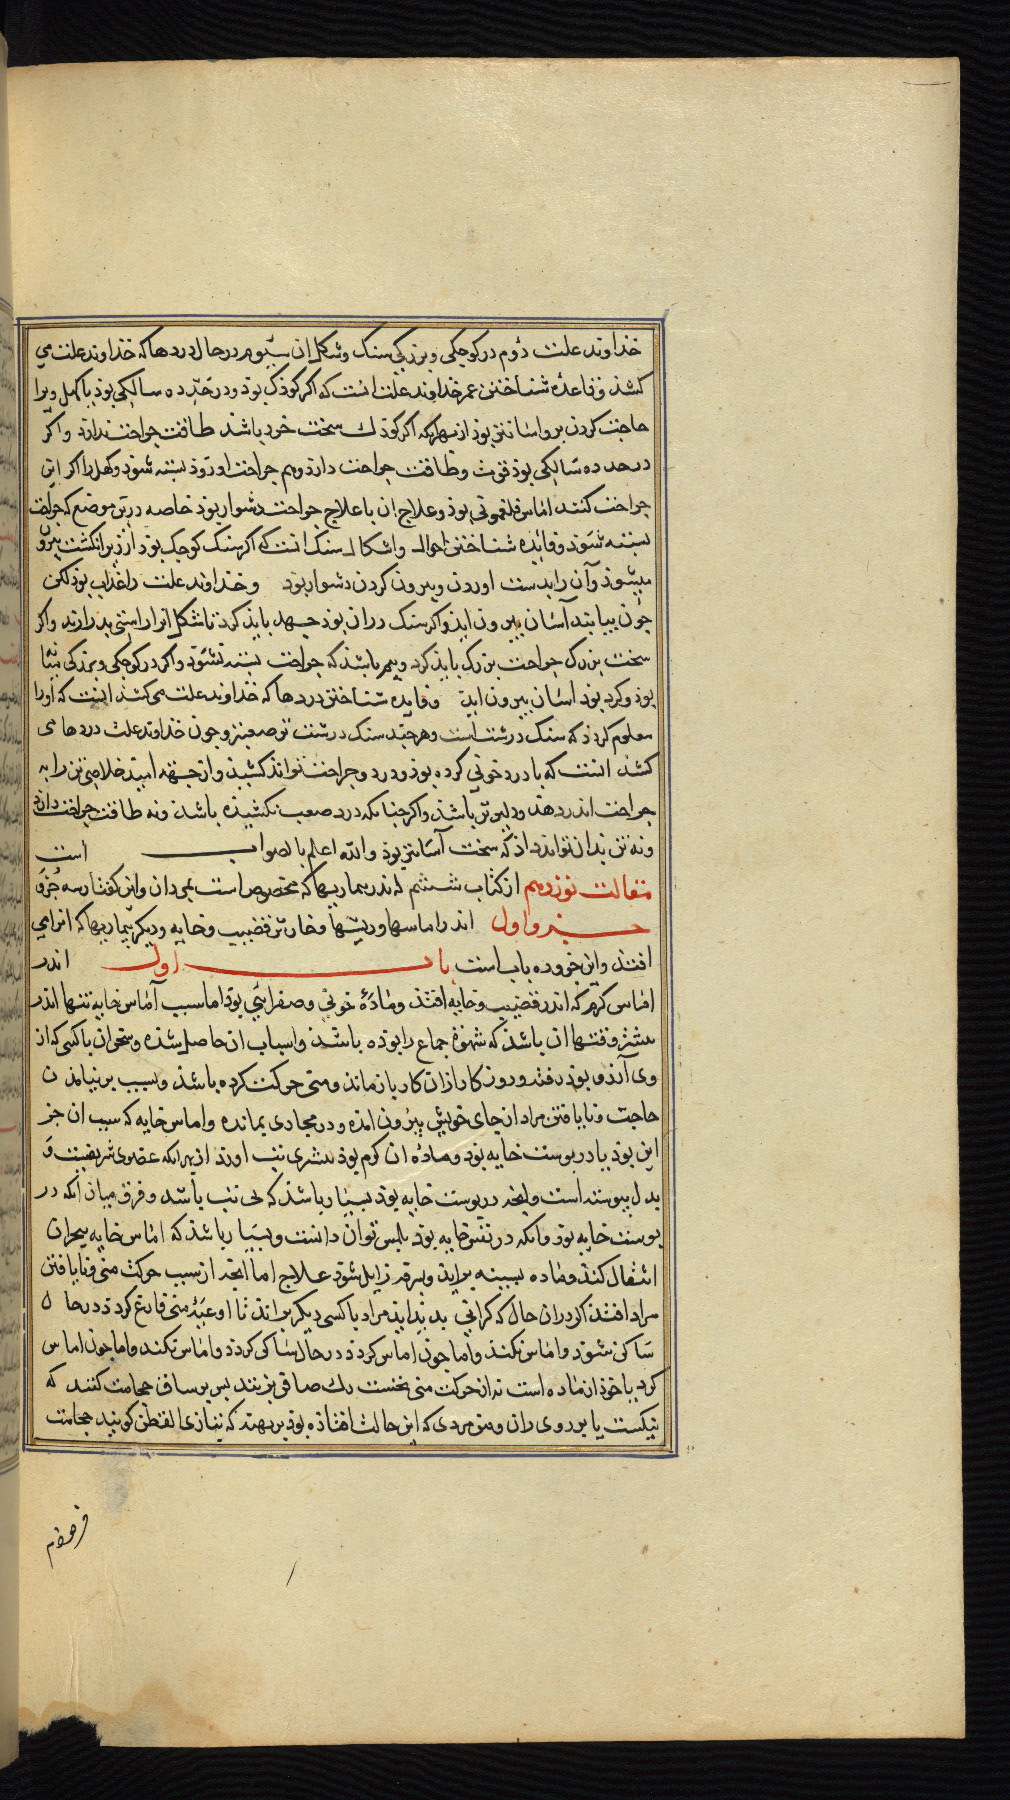 خداوند علت دوم در کوچکی و بزرکی سنک و شکل ان سیوم در حال دردها که خداوند علت می
کشذ و فاعدهٔ شناختن عمر خداوند علت انست که اکر کوذک بوذ و در حدّ ده سالکی بوذ یا کهل و یرا
حاجت کردن برو اسانتر بوذ از بهر انکه اکر کوذك سخت خرد باشذ طاقت جراحت ندارد و اکر
در حد ده سالکی بوذ قوت و طاقت جراحت دارد و هم جراحت او زوذ بسته شوذ و کهل را اکر این
جراحت کنند اماس فلغمونی بوذ و علاج ان با علاج جراحت دشوار بوذ خاصه درین موضع که جراحت
بسته شوذ و فایده شناختن احوال و اشکال سنک انست که اکر سنک کوچک بوذ از زیر انکشت بیرون
میشوذ و آن را بدست اوردن و بیرون کردن دشوار بوذ و خداوند علت را عذاب بوذ لکن
چون بیابند آسان بیرون ایذ و اکر سنک دران بوذ جهد بایذ کرد تا شکل انرا راستی بدر ارند و اکر
سخت بزرك جراحت بزرك بایذ کرد و بیم باشذ که جراحت بسته نشوذ و اکر در کوچکی و بزرکی میانه
بوذ و کرد بوذ اسان بیرون ایذ و فایده شناختن دردها که خداوند علت می کشذ اینست که اورا
معلوم کردذ که سنک درشت است و هرچند سنک درشت تر صعبتر و چون خداوند علت دردها می
کشذ انست که با درد خوئی کرده بوذ و درد و جراحت تواند کشیذ و از جهة امید خلاصی تن را به
جراحت اندر دهذ و دلیرتر باشذ و اکر چنانکه درد صعب نکشیذه باشذ و نه طاقت جراحت دارد
و نه تن بدان تواند داذ که سخت آسانتر بوذ والله اعلم بالصواب است
مقالت نوزدهم از کتاب ششم اندر بیماریها که مخصوص است بمردان و این کفتار سه جزو
جزو اول اندر اماسها و ریشها و خارش قضیب و خایه و دیکر بیماریها که انرا می
افتذ و این جزو ده باب است باب اول اندر
اماس کرم که اندر قضیب و خایه افتذ و مادّهٔ خونی و صفرائی بوذ اما سبب آماس خایه تنها اندر
بیشتر وقتها ان باشذ که شهوة جماع را بوذه باشذ و اسباب ان حاصل شذه و سخوان با کسی که از
وی آرزو بوذ رفته و روزکار ازان کار باز ماند و منی حرکت کرده باشذ و بسبب برنیامدن
حاجت و نایافتن مراد از جای خویش بیرون امذه و در مجاری بمانده و اماس خایه که سبب ان جز
این بوذ یا در پوست خایه بوذ و مادهٔ ان کرم بوذ بیشتری تب اورد از بهر انکه عضوی شریفست و
بدل پیوسته است و انچه در پوست خایه بوذ بسیار باشذ که بی تب باشد و فرق میان انکه در
پوست خایه بوذ و انکه در نفس خایه بوذ بلمس توان دانست و بسیار باشذ که اماس خایه ببحران
انتقال کند و ماده بسینه برایذ و بسرفه زایل شوذ علاج اما انچه از سبب حرکت منی و نایافتن
مراد افتذ اکر دران حال که کرانی بدید اید مراد با کسی دیکر براند تا اوعیهٔ منی فارغ کردد در حال
ساکن شوذ و اماس نکند و اما چون اماس کردذ در حال ساکن کردذ و اماس نکند و اما چون اماس
کرد یا خوذ از ماده است نه از حرکت منی نخست رك صافن بزنند پس بر ساق حجامت کنند که
نیکست یا بر روی ران و هر مردی که این حالت افتاذه بوذ بر بهتر که بتازی القطن کویند حجامت